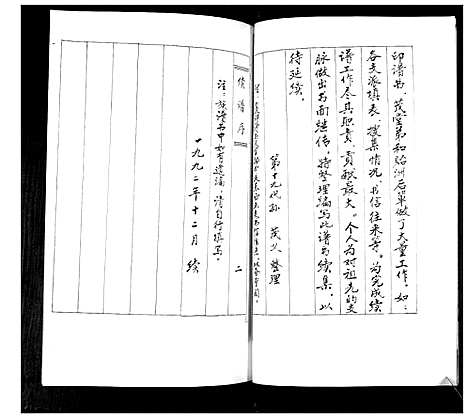 印谱书，茂堂弟和贻洲后辈做了大量工作，如：
各支派填表、搜集情况、书信往来等。为完成续
谱工作尽其职责，贡献最大。个人为对祖先的支
脉做出书面继传，特整理编写此谱书续集，以
待延续。
第十九代孙 茂义 整理
续谱序
二
注：族谱书中如有遗漏，请自行填写。
一九九二年十二月 续